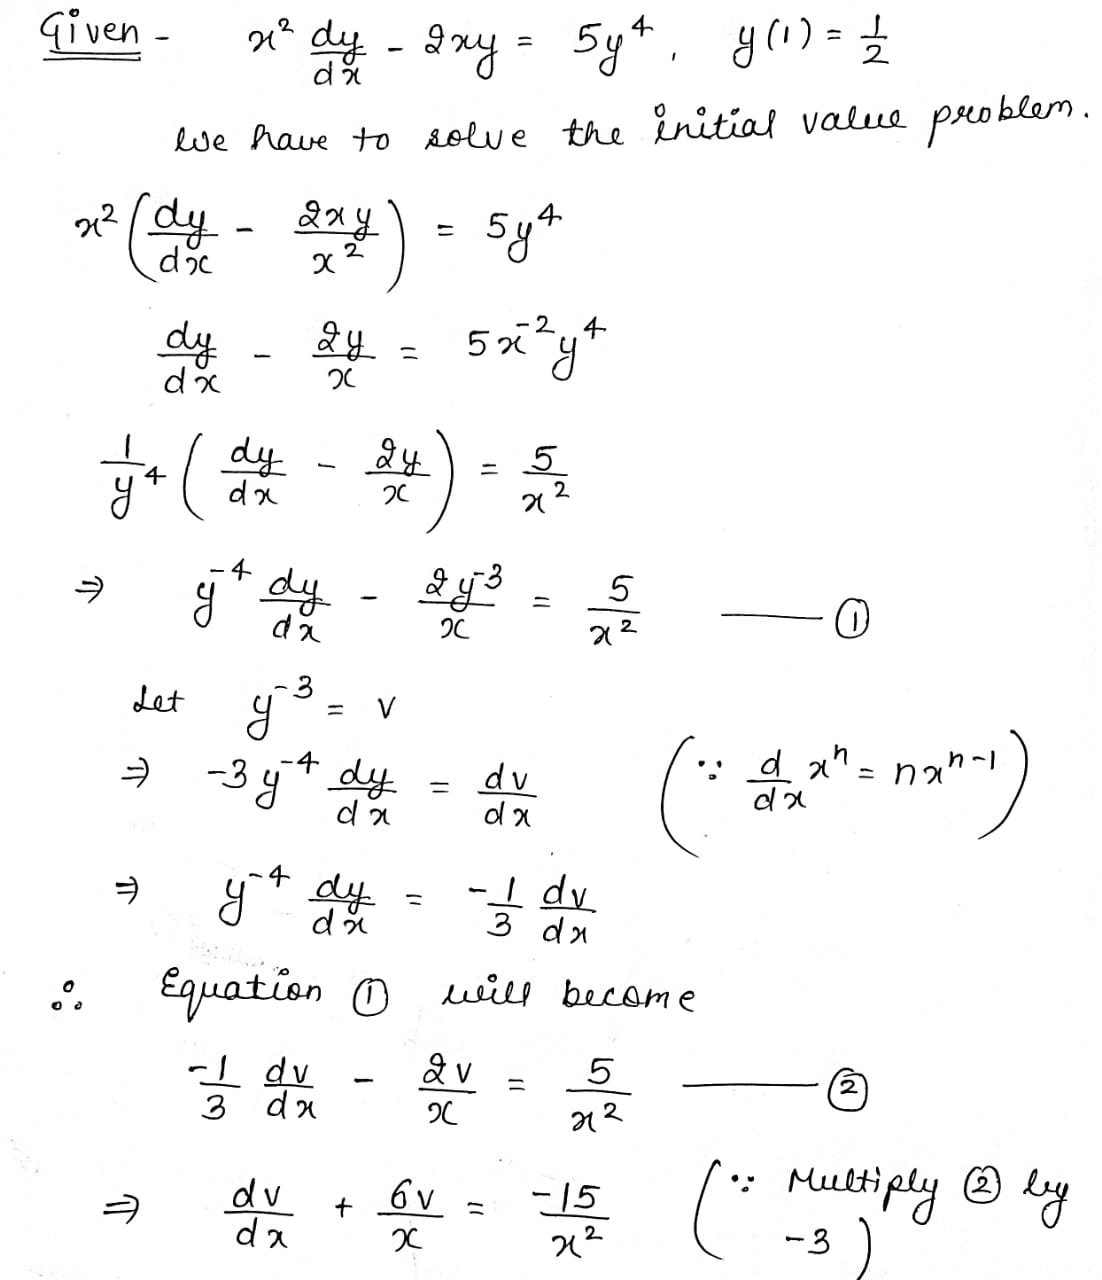 Given - x² dy/dx - 2xy = 5y⁴, y(1) = 1/2
We have to solve the initial value problem.
x² (dy/dx - 2xy/x²) = 5y⁴
dy/dx - 2y/x = 5x⁻²y⁴
1/y⁴ (dy/dx - 2y/x) = 5/x²
⇒ y⁻⁴ dy/dx - 2y⁻³/x = 5/x² —— ①
Let y⁻³ = v
⇒ -3y⁻⁴ dy/dx = dv/dx (∵ d/dx xⁿ = nxⁿ⁻¹)
⇒ y⁻⁴ dy/dx = -1/3 dv/dx
∴ Equation ① will become
-1/3 dv/dx - 2v/x = 5/x² —— ②
⇒ dv/dx + 6v/x = -15/x² (∵ Multiply ② by
-3)